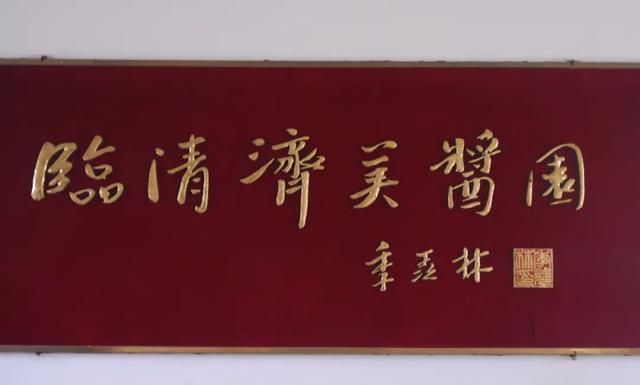 臨清濟美醬園
季羡林